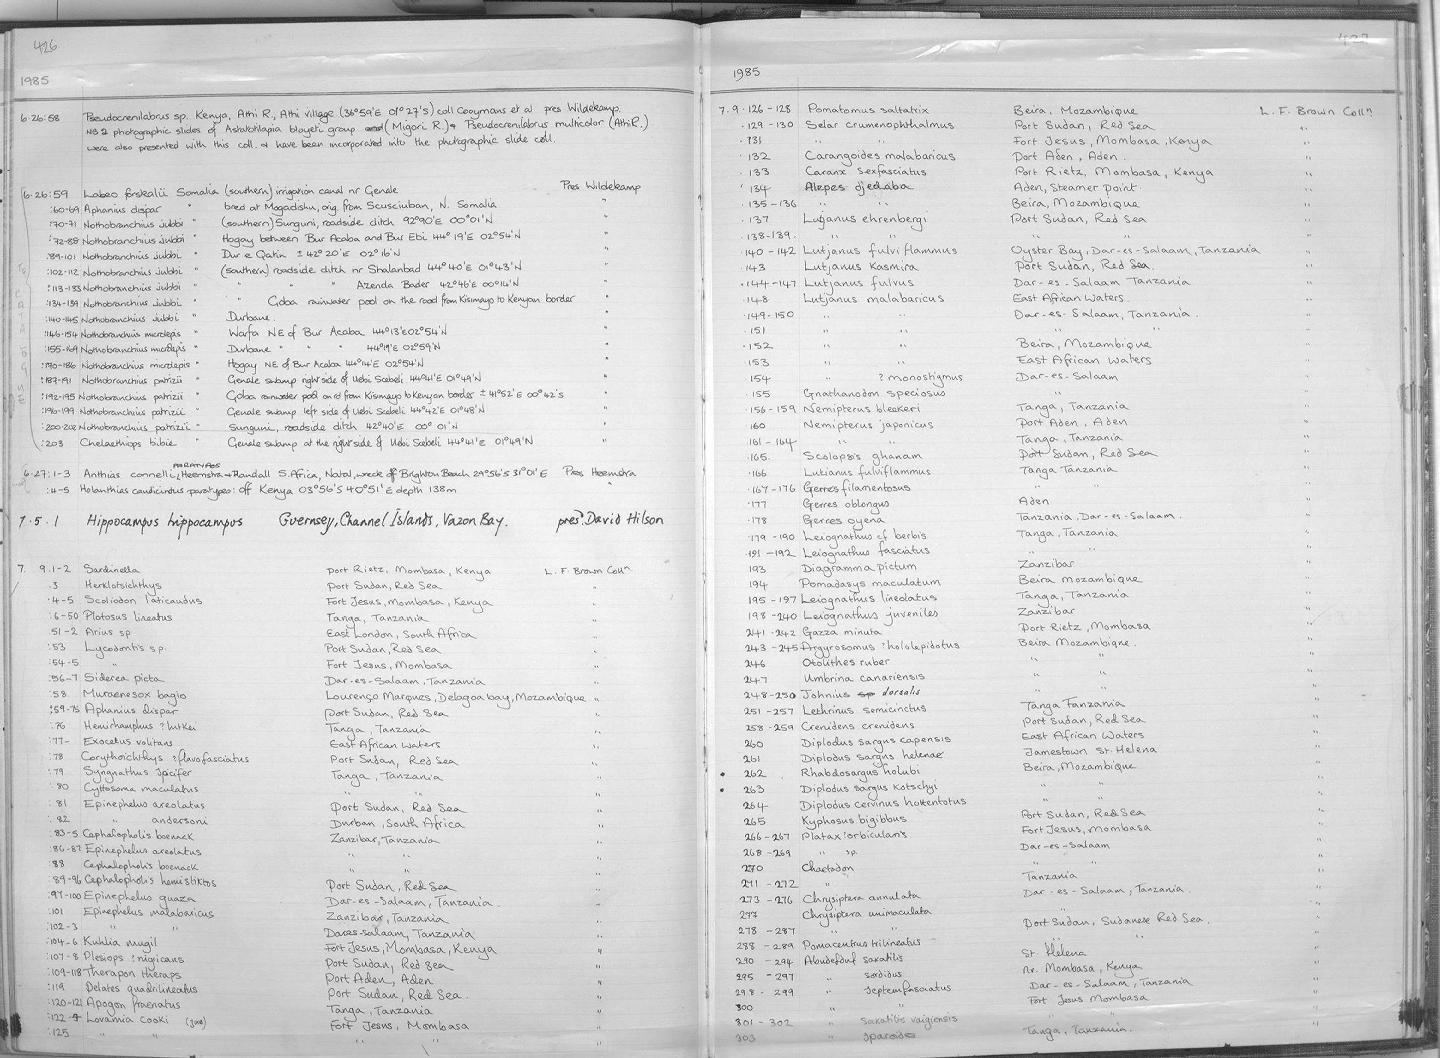 426
1985
6.26:58 Pseudocrenilabrus sp. Kenya, Athi R., Athi village (36°59'E 01°27'S) coll Cooymans et al pres Wildekamp.
NB 2 photographic slides of Astatotilapia bloyeti group (Migori R.) & Pseudocrenilabrus multicolor (Athi R.)
were also presented with this coll. & have been incorporated into the photographic slide coll.
6.26:59 Labeo forskalii Somalia (southern) irrigation canal nr Genale Pres Wildekamp
:60-69 Aphanius dispar " bred at Mogadishu, orig. from Scusciuban, N. Somalia "
:70-71 Nothobranchius jubbi " (southern) Sunguni, roadside ditch 42°40'E 00°01'N "
:72-88 Nothobranchius jubbi " Hogay between Bur Acaba and Bur Ebi 44°19'E 02°54'N "
:89-101 Nothobranchius jubbi " Dur e Qatin ± 42°20'E 02°16'N "
:102-112 Nothobranchius jubbi " (southern) roadside ditch nr Shalanbad 44°40'E 01°43'N "
:113-133 Nothobranchius jubbi " " " Azenda Bader 42°46'E 00°14'N "
:134-139 Nothobranchius jubbi " Goba rainwater pool on the road from Kisimayo to Kenyan border "
:140-145 Nothobranchius jubbi " Durbane "
:146-154 Nothobranchius microlepis " Warfa NE of Bur Acaba 44°13'E 02°54'N "
:155-169 Nothobranchius microlepis " Durbane " " 44°19'E 02°59'N "
:170-186 Nothobranchius microlepis " Hogay NE of Bur Acaba 44°14'E 02°54'N "
:187-191 Nothobranchius patrizii " Genale swamp right side of Uebi Scebeli 44°41'E 01°49'N "
:192-195 Nothobranchius patrizii " Goba rainwater pool on rd from Kismayo to Kenyan border ± 41°52'E 00°42's "
:196-199 Nothobranchius patrizii " Genale swamp left side of Uebi Scebeli 44°42'E 01°48'N "
:200-202 Nothobranchius patrizii " Sunguni, roadside ditch 42°40'E 00°01'N "
:203 Chelaethiops bibie " Genale swamp at the right side of Uebi Scebeli 44°41'E 01°49'N "
PARATYPES
6.27:1-3 Anthias connelli, Heemstra & Randall S. Africa, Natal, wreck off Brighton Beach 29°56'S 31°01'E Pres Heemstra
:4-5 Holanthias caudicinctus paratypes: off Kenya 03°56'S 40°51'E depth 138m "
7.5.1 Hippocampus hippocampus Guernsey, Channel Islands, Vazon Bay. pres. David Hilson
7. 9.1-2 Sardinella Port Rietz, Mombasa, Kenya L. F. Brown Colln
.3 Herklotsichthys Port Sudan, Red Sea "
.4-5 Scoliodon laticaudus Fort Jesus, Mombasa, Kenya "
:6-50 Plotosus lineatus Tanga, Tanzania "
51-2 Arius sp East London, South Africa "
:53 Lycodontis sp. Port Sudan, Red Sea "
:54-5 " Fort Jesus, Mombasa "
:56-7 Siderea picta Dar-es-Salaam, Tanzania "
:58 Muraenesox bagio Lourenço Marques, Delagoa bay, Mozambique "
:59-75 Aphanius dispar Port Sudan, Red Sea "
:76 Hemirhamphus ?lutkei Tanga, Tanzania "
:77- Exocetus volitans East African Waters "
:78 Corythoichthys ?flavofasciatus Port Sudan, Red Sea "
:79 Syngnathus spicifer Tanga, Tanzania "
:80 Cyttosoma maculatus " " "
:81 Epinephelus areolatus Port Sudan, Red Sea "
:82 " andersoni Durban, South Africa "
:83-5 Cephalopholis boenack Zanzibar, Tanzania "
:86-87 Epinephelus areolatus " " "
:88 Cephalopholis boenack "
:89-96 Cephalopholis hemistiktos Port Sudan, Red Sea "
:97-100 Epinephelus guaza Dar-es-Salaam, Tanzania. "
:101 Epinephelus malabaricus Zanzibar, Tanzania "
:102-3 " " Dar-es-salaam, Tanzania "
:104-6 Kuhlia mugil Fort Jesus, Mombasa, Kenya "
:107-8 Plesiops ?nigricans Port Sudan, Red Sea "
:109-118 Therapon theraps Port Aden, Aden "
:119 Pelates quadrilineatus Port Sudan, Red Sea. "
:120-121 Apogon fraenatus Tanga, Tanzania "
:122-4 Lovamia cooki (juv) Fort Jesus, Mombasa "
:125 " " "
427
1985
7.9.126-128 Pomatomus saltatrix Beira, Mozambique L. F. Brown Colln
.129-130 Selar crumenophthalmus Port Sudan, Red Sea "
.131 " " Fort Jesus, Mombasa, Kenya "
.132 Carangoides malabaricus Port Aden, Aden. "
.133 Caranx sexfasciatus Port Rietz, Mombasa, Kenya "
134 Alepes djedaba Aden, Steamer point. "
.135-136 " " Beira, Mozambique "
.137 Lutjanus ehrenbergi Port Sudan, Red Sea "
.138-139. " " " " "
.140-142 Lutjanus fulviflammus Oyster Bay, Dar-es-Salaam, Tanzania "
.143 Lutjanus kasmira Port Sudan, Red Sea. "
.144-147 Lutjanus fulvus Dar-es-Salaam Tanzania "
.148 Lutjanus malabaricus East African Waters. "
.149-150 " " Dar-es-Salaam, Tanzania. "
.151 " " " " "
.152 " " Beira, Mozambique "
.153 " " East African Waters "
.154 " ?monostigmus Dar-es-Salaam "
.155 Gnathanodon speciosus " "
.156-159 Nemipterus bleekeri Tanga, Tanzania "
160 Nemipterus japonicus Port Aden, Aden "
161-164 " " Tanga, Tanzania "
.165. Scolopsis ghanam Port Sudan, Red Sea "
.166 Lutjanus fulviflammus Tanga Tanzania "
.167-176 Gerres filamentosus " " "
.177 Gerres oblongus Aden "
.178 Gerres oyena Tanzania, Dar-es-Salaam. "
.179-190 Leiognathus cf berbis Tanga, Tanzania "
.191-192 Leiognathus fasciatus " " "
193 Diagramma pictum Zanzibar "
194 Pomadasys maculatum Beira Mozambique "
195-197 Leiognathus lineolatus Tanga, Tanzania "
198-240 Leiognathus juveniles Zanzibar "
241-242 Gazza minuta Port Rietz, Mombasa "
243-245 Argyrosomus ?hololepidotus Beira Mozambique. "
246 Otolithes ruber " " "
247 Umbrina canariensis " " "
248-250 Johnius sp dorsalis " " "
251-257 Lethrinus semicinctus Tanga Tanzania "
258-259 Crenidens crenidens Port Sudan, Red Sea "
260 Diplodus sargus capensis East African Waters "
261 Diplodus sargus helenae Jamestown St. Helena "
262 Rhabdosargus holubi Beira, Mozambique "
263 Diplodus sargus kotschyi " " "
264 Diplodus cervinus hottentotus " " "
265 Kyphosus bigibbus Port Sudan, Red Sea "
266-267 Platax ?orbicularis Fort Jesus, Mombasa "
268-269 " sp. Dar-es-Salaam "
270 Chaetodon " " "
271-272 " Tanzania "
273-276 Chrysiptera annulata Dar-es-Salaam, Tanzania. "
277 Chrysiptera unimaculata " "
278-287 " " Port Sudan, Sudanese Red Sea. "
288-289 Pomacentrus trilineatus " " "
290-294 Abudefduf saxatilis St. Helena "
295-297 " sordidus nr. Mombasa, Kenya "
298-299 " septemfasciatus Dar-es-Salaam, Tanzania "
300 " " Fort Jesus Mombasa "
301-302 " saxatilis vaigiensis "
303 " sparoides Tanga, Tanzania. "